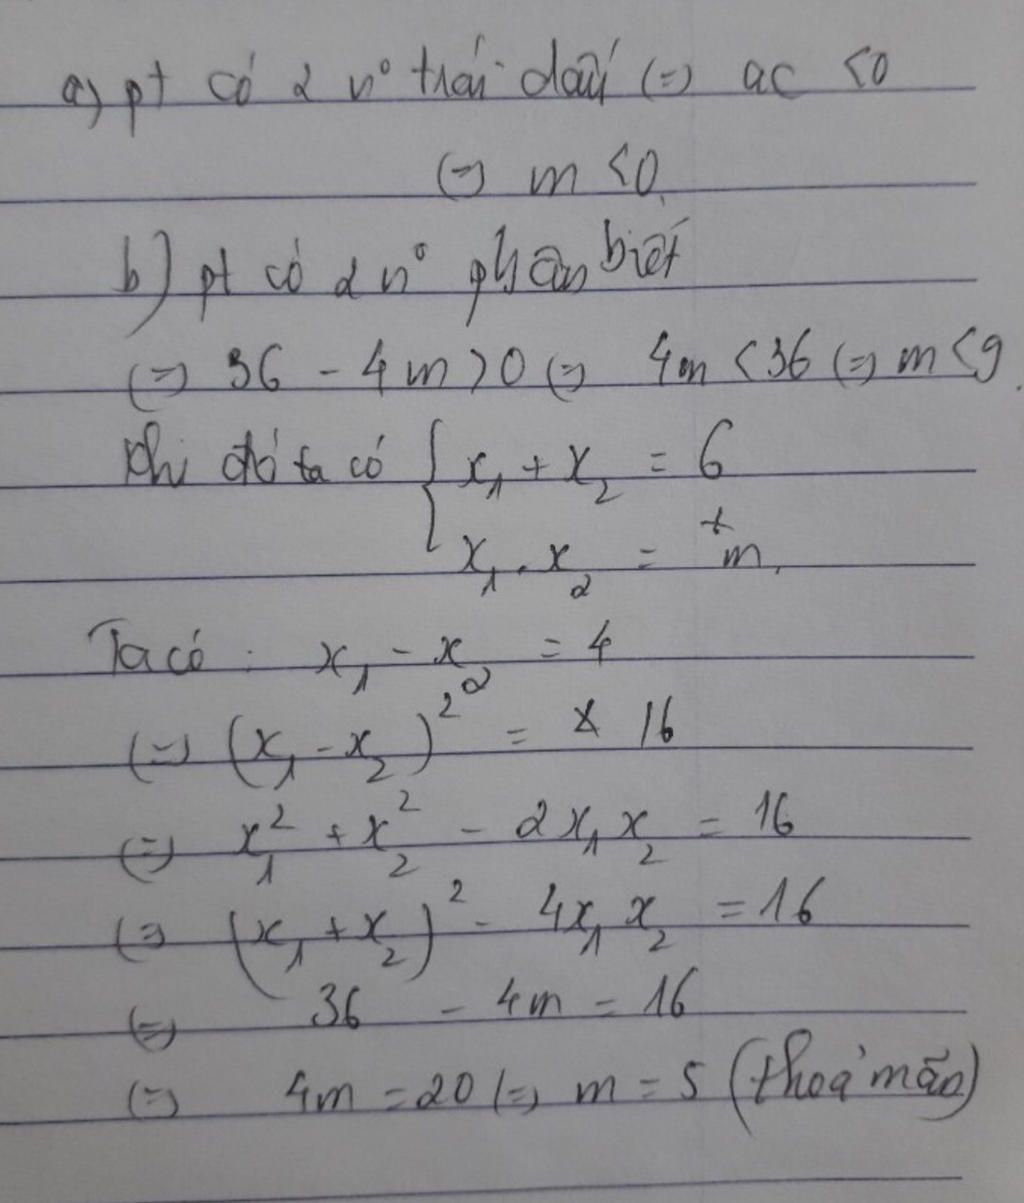 a) pt có 2 n° trái dấu (=) ac <0
(=) m <0.
b) pt có 2 n° phân biệt
(=) 36 - 4m >0 (=) 4m <36 (=) m <9.
Khi đó ta có { x₁ + x₂ = 6
x₁ . x₂ = +m.
Ta có : x₁ - x₂ = 4
(=) (x₁ - x₂)² = 16
(=) x₁² + x₂² - 2x₁x₂ = 16
(=) (x₁ + x₂)² - 4x₁x₂ = 16
(=) 36 - 4m = 16
(=) 4m = 20 (=) m = 5 (thoả mãn)